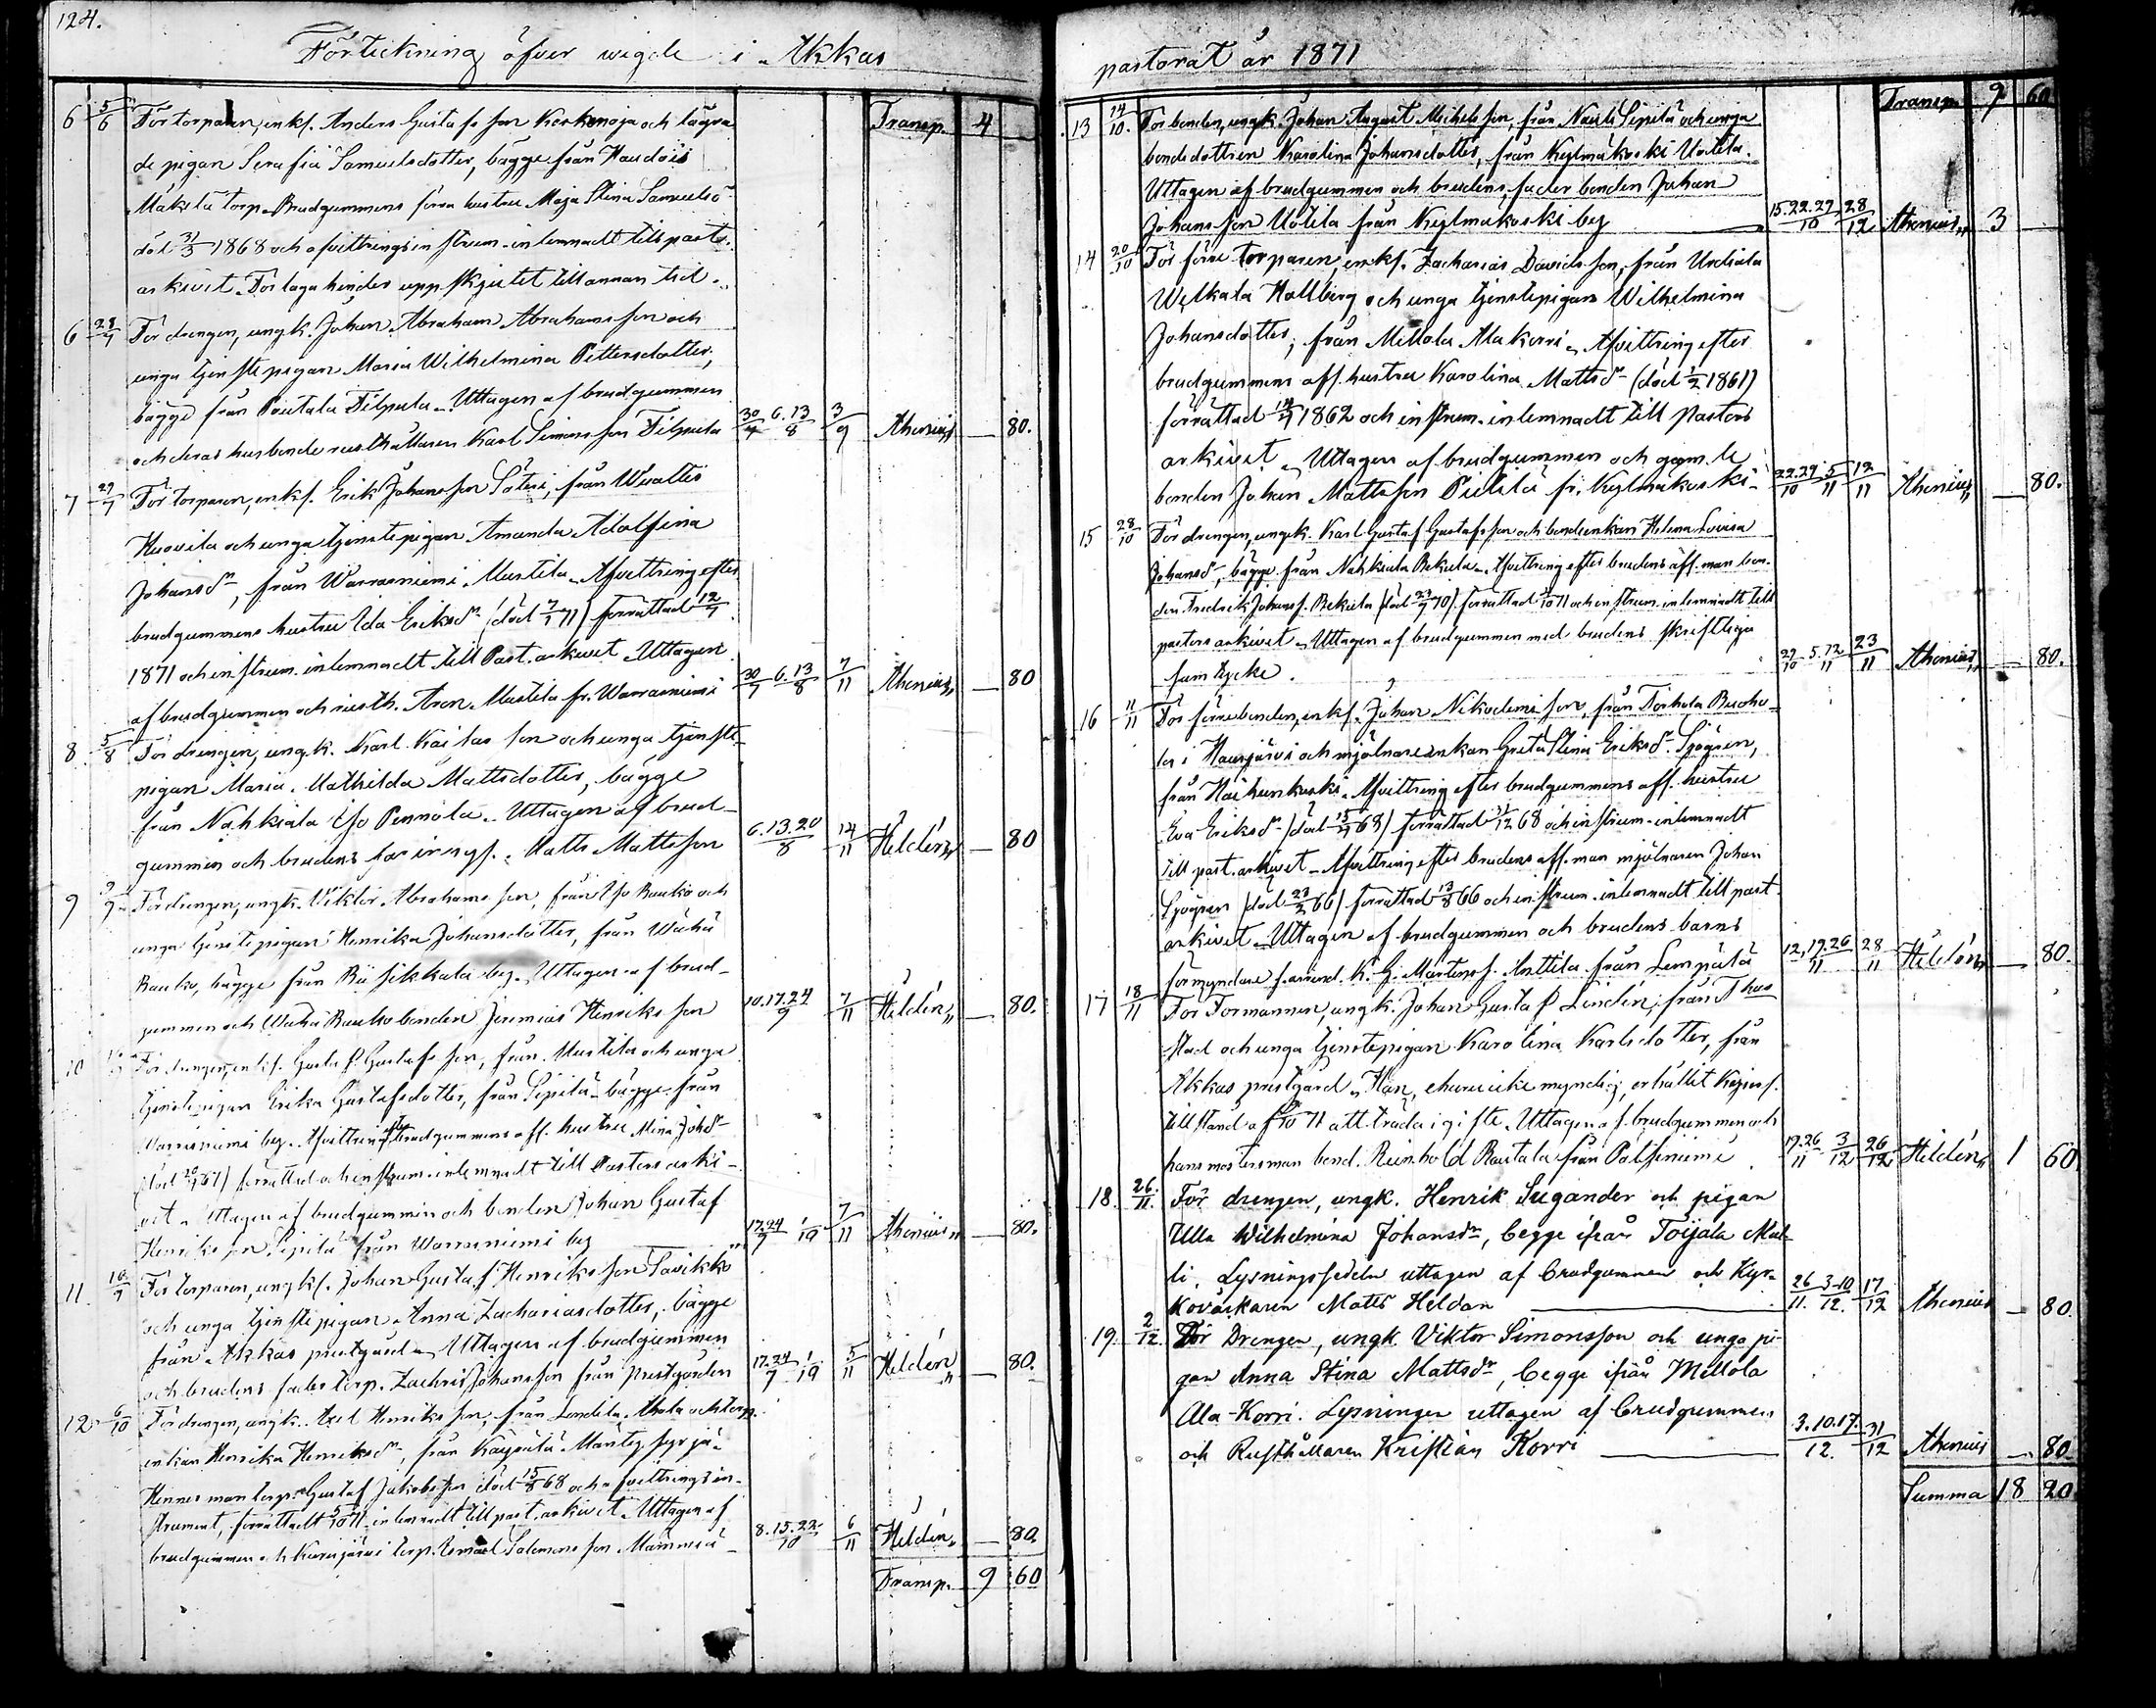 124.
Förtekning öfver wigde i Akkas
Transp. 4
6 5/6 För torparen, enkl. Anders Gustafsson Korkenoja och lägra
de pigan Serafia Samuelsdotter, bägge från Haudois
Mäkelä torp. Brudgummens förra hustru Maja Stina Samuelsd
död 31/3 1868 och afvittringsinstrum. inlemnadt till pasts.
arkivet. För laga hinder uppskjutet till annan tid.
6 28/7 För drengen, ungk. Johan Abraham Abrahamsson och
unga tjenstepigan Maria Wilhelmina Pettersdotter,
bägge från Pautala Filpula. Uttagen af brudgummen
och deras husbonde rusthållaren Karl Simonsson Filpula 30/7 6.13/8 3/9 Athenius — 80.
7 29/7 För torparen, enkl. Erik Johansson Söteri, från Wiralles
Huovila och unga tjenstepigan Amanda Adolfina
Johansdr, från Warrasniemi Mustila. Afvittring efter
brudgummens hustru Ida Eriksdr (död 7/1 71) förrättad 12/7
1871 och instrum. inlemnadt till Past. arkivet. Uttagen
af brudgummen och rusth. Aron Mustila fr. Warrasniemi 30/7 6.13/8 7/11 Athenius — 80
8 5/8 För drengen, ungk. Karl Kaisasson och unga tjenste-
pigan Maria Mathilda Mattsdotter, bägge
från Nahkiala Iso Pennola. Uttagen af brud-
gummen och brudens far inhys. Matts Mattsson 6.13.20/8 14/11 Heldén — 80
9 9/9 För drengen, ungk. Viktor Abrahamsson, från Iso Rauko och
unga tjenstepigan Henrika Johansdotter, från Wähä
Rauko, bägge från Riisikkala by. Uttagen af brud-
gummen och Wähä Rauko bonden Jeremias Henriksson 10.17.24/9 7/11 Heldén — 80.
10 För drengen, enkl. Gustaf Gustafsson, från Mustila och unga
tjenstepigan Erika Gustafsdotter, från Sipilä, bägge från
Warrasniemi by. Afvittring efter brudgummens afl. hustru Mina Johdr
förrättad och instrum. inlemnadt till Pastors arki-
vet. Uttagen af brudgummen och bonden Johan Gustaf
Henriksson Sipilä från Warrasniemi by 17.24/9 1/10 7/11 Athenius — 80.
11 16/9 För torparen, ungkl. Johan Gustaf Henriksson Savikko
och unga tjenstepigan Anna Zachariasdotter, bägge
från Akkas prestgård. Uttagen af brudgummen
och brudens fader torp. Zachris Johansson från Prestgården 17.24/9 1/10 5/11 Heldén — 80.
12 6/10 För drengen, ungk. Axel Henriksson, från Lendila Ahola och torp.
enkan Henrika Henriksdr, från
Hennes man torp. Gustaf Jakobsson död 15/8 68 och afvittringsin-
strument, förrättadt 5/10 71 inlemnadt till past. arkivet. Uttagen af
brudgummen och Kurisjärvi torp. Salomonsson 8.15.22/10 6/11 Heldén — 80.
Transp. 9 60
pastorat år 1871
Transp. 9 60
13 14/10. För bonden, ungk. Johan August Michelsson, från Nauli Sipilä och unga
bondedottren Karolina Johansdotter, från Kylmäkoski Uotila.
Uttagen af brudgummen och brudens fader bonden Johan
Johansson Uotila från Kylmäkoski by 15.22.29/10 28/12 Athenius 3 —
14 20/10 För förre torparen, enkl. Zacharias Davidsson, från Urdiala
Welkala Hallberg och unga tjenstepigan Wilhelmina
Johansdotter, från Mellola Alakorri. Afvittring efter
brudgummens afl. hustru Karolina Mattsdr (död 1/2 1861)
förrättad 1862 och instrum. inlemnadt till Pastors
arkivet. Uttagen af brudgummen och gamle
bonden Johan Mattsson Pietilä fr. Kylmäkoski 22.29/10 5/11 12/11 Athenius — 80.
15 28/10 För drengen, ungk. Karl Gustaf Gustafsson och bondeenkan Helena Lovisa
Johansdr, bägge från Nahkiala Pekola. Afvittring efter brudens afl. man bon-
den Fredrik Johanss. Pekola (död 29/7 70) förrättad 71 och instrum. inlemnadt till
pastors arkivet. Uttagen af brudgummen med brudens skriftliga
samtycke. 29/10 5.12/11 23/11 Athenius — 80.
16 11/11 För förrebonden, enkl. Johan Nikodemisson, från Torhola
la i Hausjärvi och mjölnareenkan Greta Stina Eriksdr Sjögren,
från Haihunkoski. Afvittring efter brudgummens afl. hustru
Eva Eriksdr (död 15/4 68) förrättad 31/12 68 och instrum. inlemnadt
till past. arkivet. Afvittring efter brudens afl. man mjölnaren Johan
Sjögren (död 23/2 66) förrättad 13/8 66 och instrum. inlemnadt till past.
arkivet. Uttagen af brudgummen och brudens barns
förmyndare f. arrend. K. G. Mårtenss. Anttila från Lempäälä 12.19.26/11 28/11 Heldén — 80.
17 18/11 För Formannen, ungk. Johan Gustaf Lindén, från Åbo
stad och unga tjenstepigan Karolina Karlsdotter, från
Akkas prestgård. Han, ehuru icke myndig, erhållit Kejserl.
tillstånd af 71 att träda i gifte. Uttagen af brudgummen och
hans mostersman bond. Reinhold Rautala från Palsiniemi 19.26/11 3/12 26/12 Heldén 1 60
18. 26./11. För drengen, ungk. Henrik Sugander och pigan
Ulla Wilhelmina Johansdr, begge ifrån Toijala Mal-
li. Lysningssedeln uttagen af brudgummen och Kyr-
koväktaren Matts Heldan 26/11. 3-10/12. 17/12 Athenius — 80.
19. 2/12 För Drengen, ungk. Viktor Simonsson och unga pi-
gan Anna Stina Mattsdr, begge ifrån Mellola
Ala-Korri. Lysningen uttagen af brudgummen
och Rusthållaren Kristian Korri 3.10.17./12. 31/12 Athenius — 80
Summa 18 20